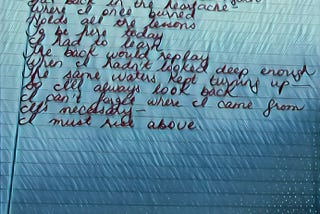 back in the heartache
when I once burned
Holds all the lessons
To be here today
I had to learn
The back would replay
When I hadn't looked deep enough
The same waters kept turning up—
So I'll always look back
I can't forget where I came from
It's necessary—
I must rise above.